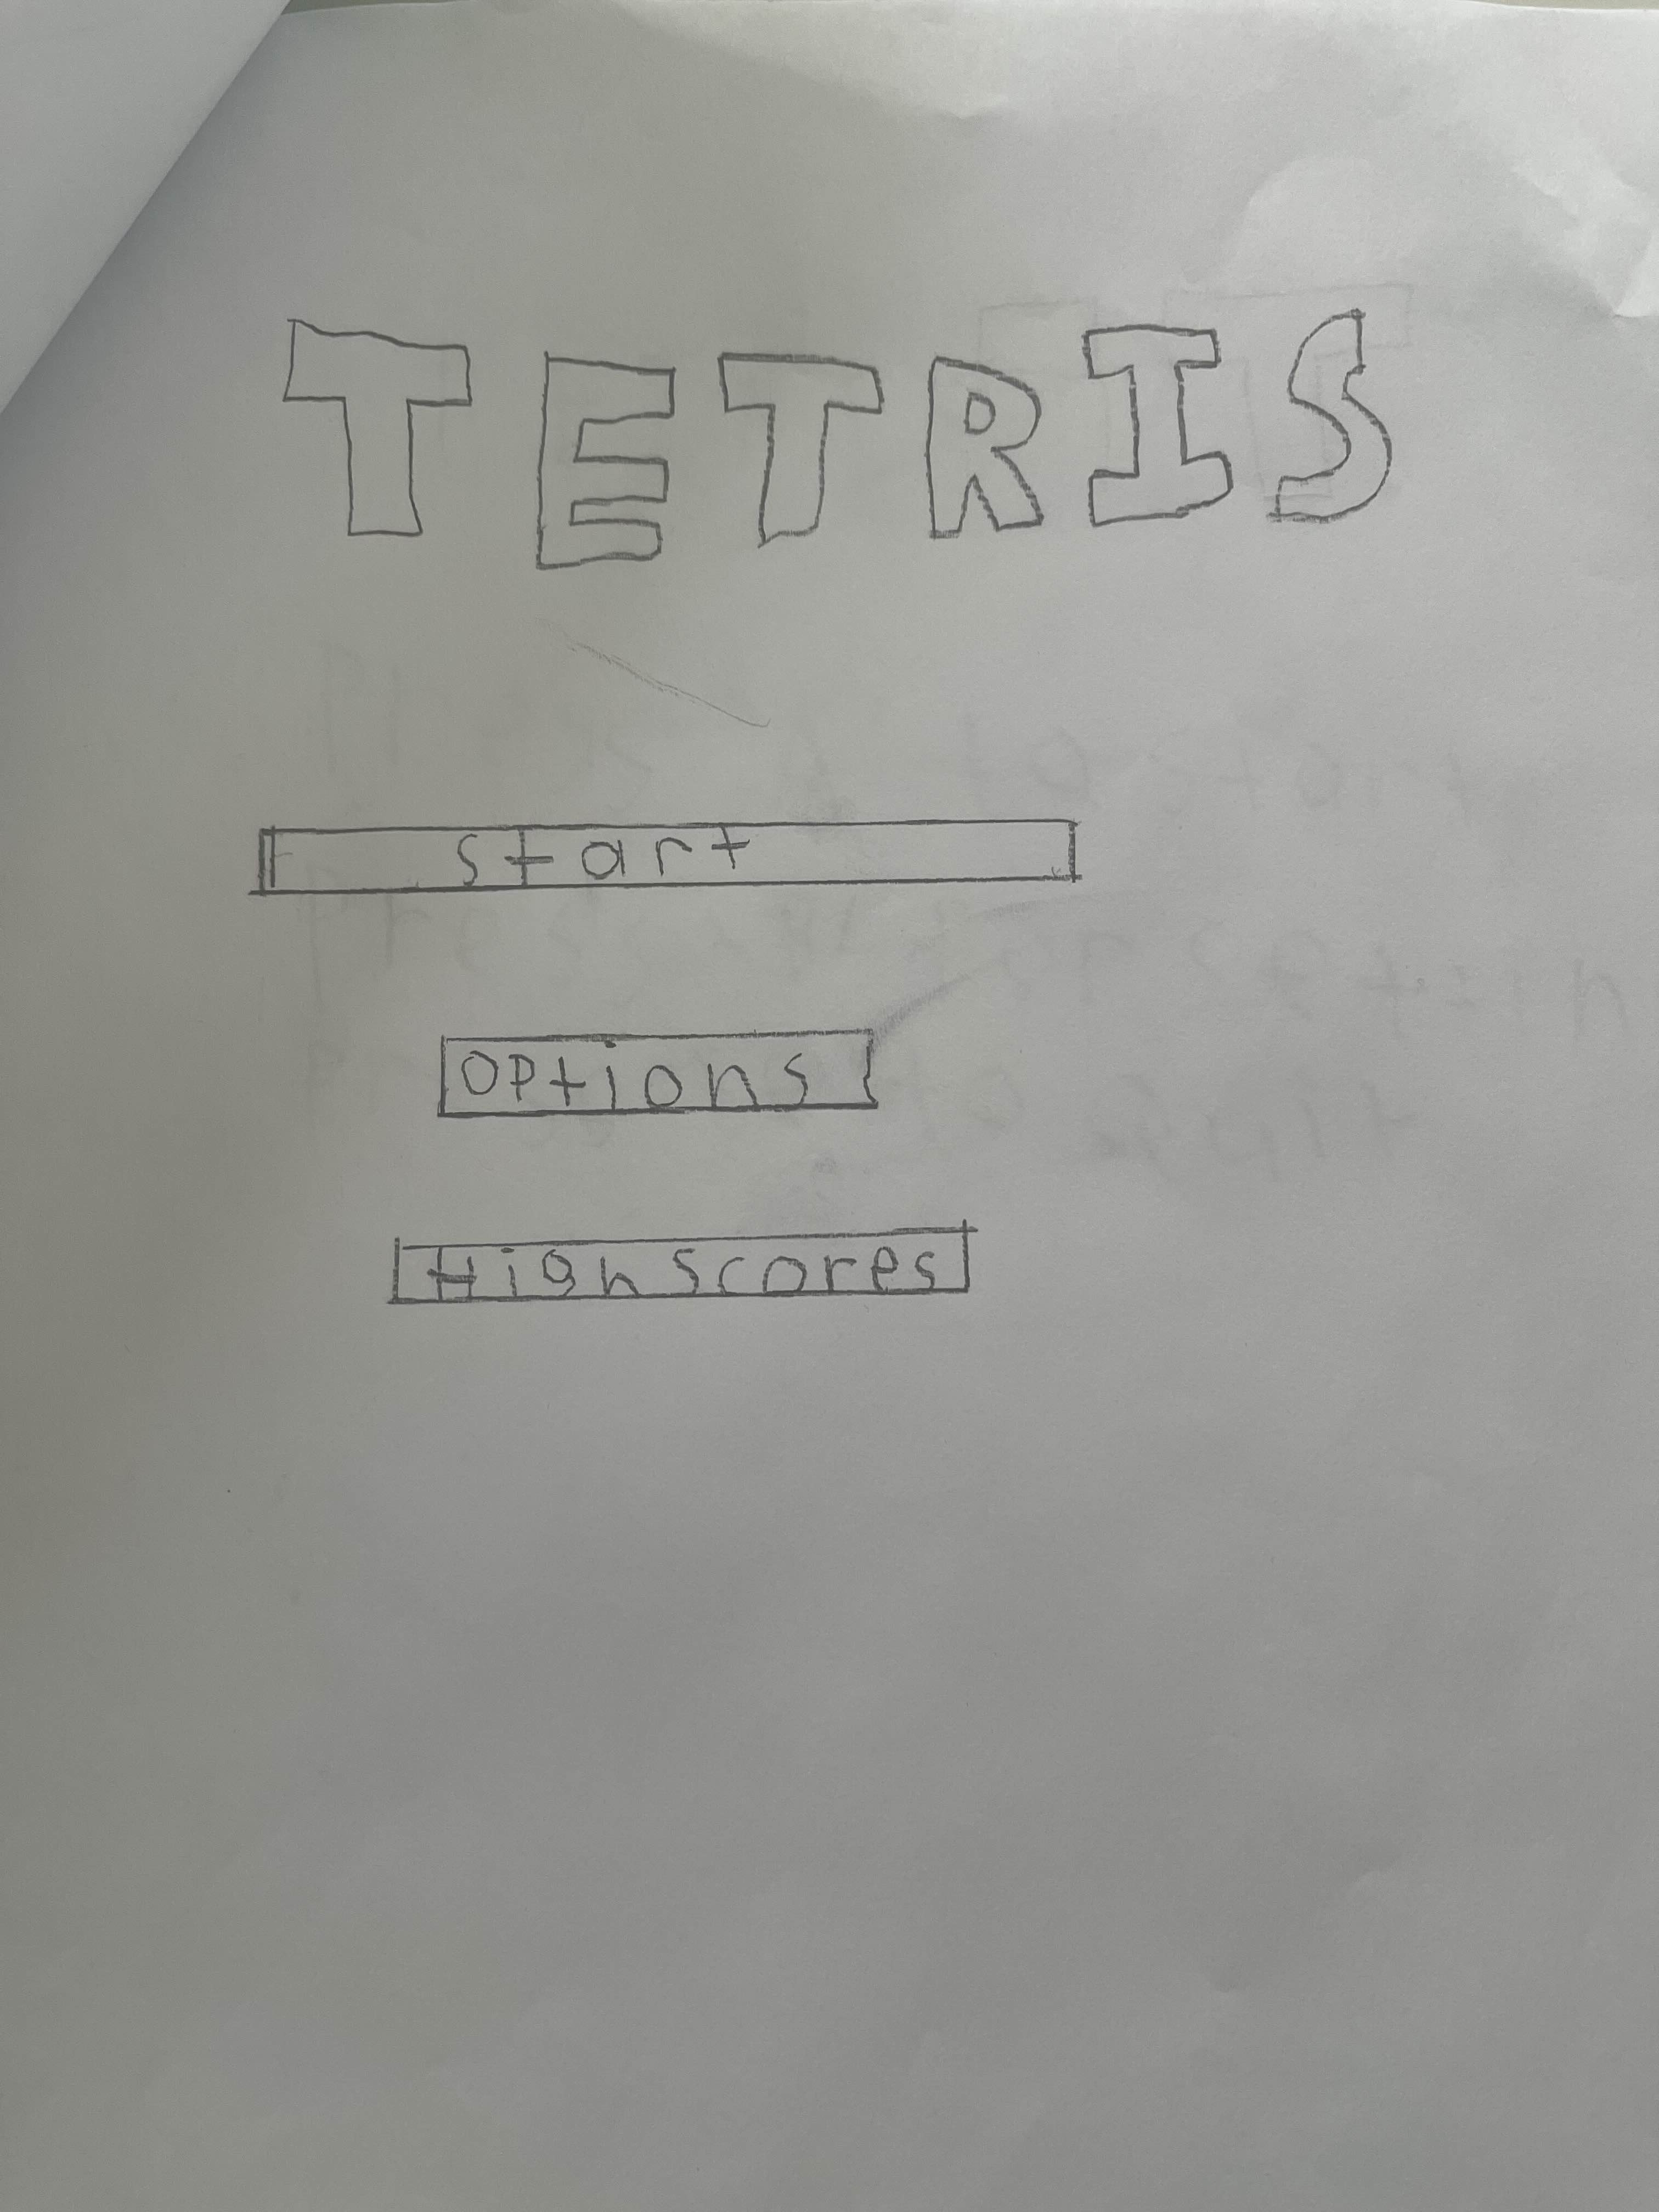 TETRIS
start
options
High scores